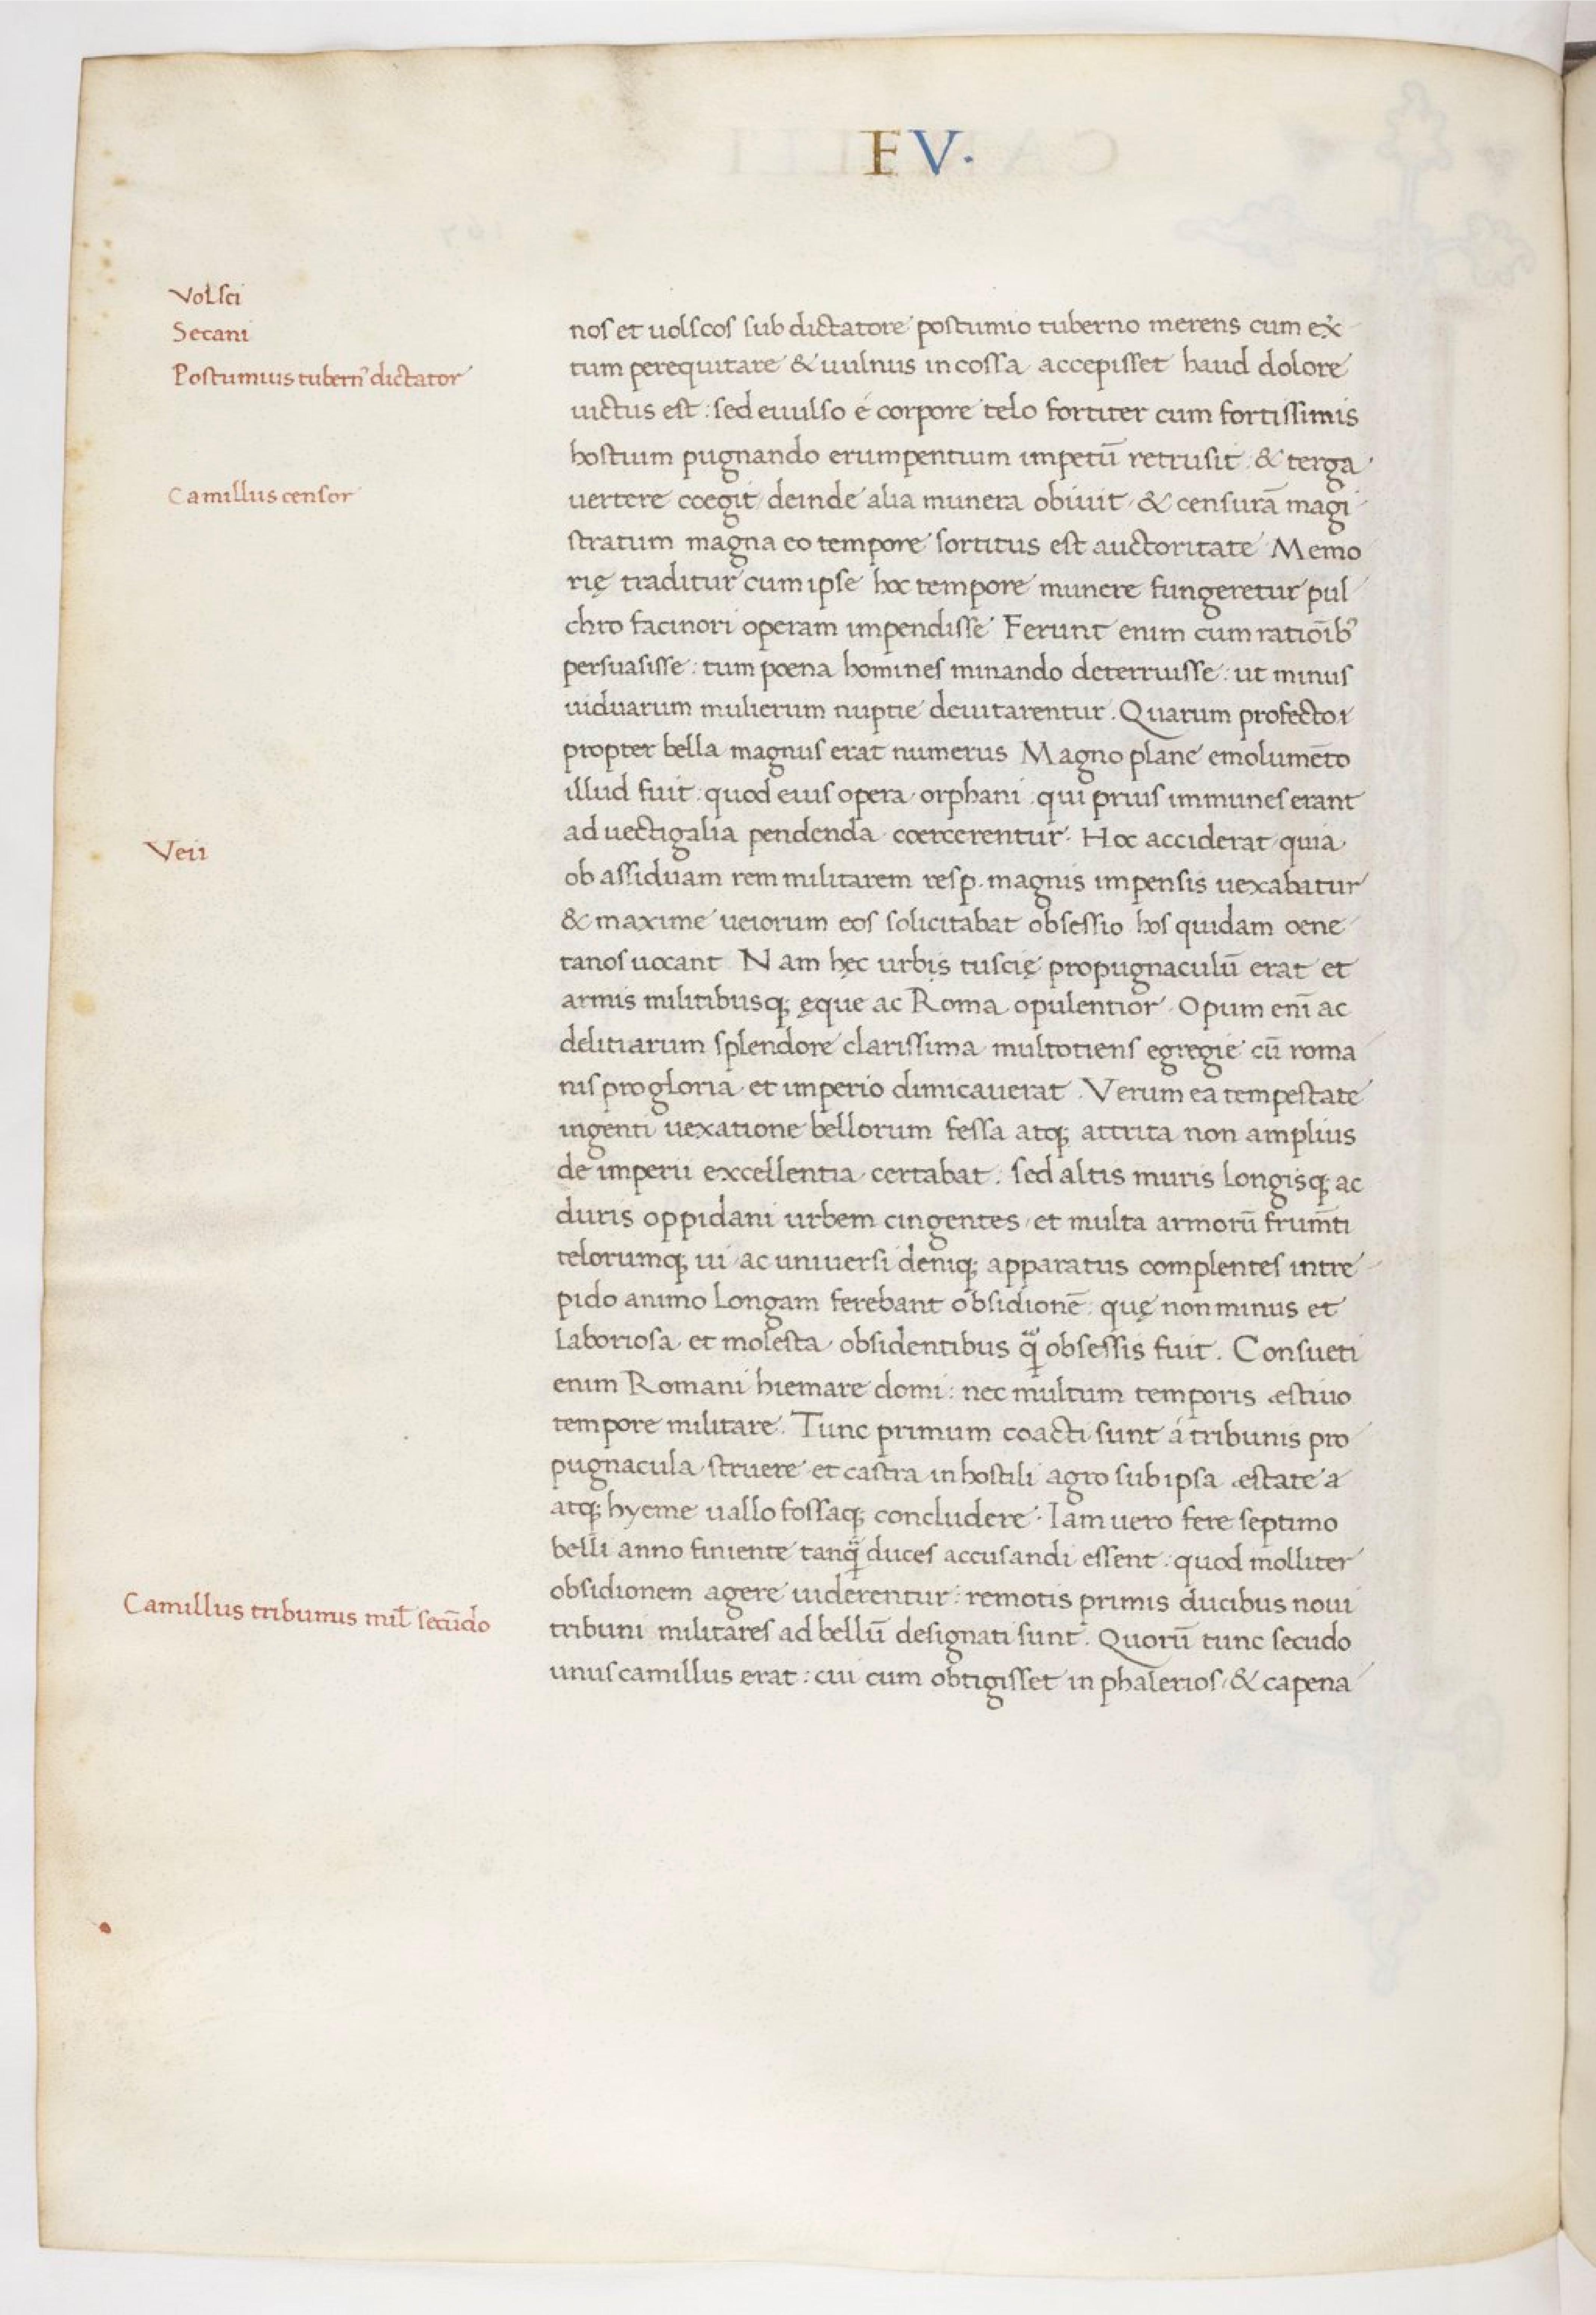 FV.
Volsci
Secani
Postumius tubern᾽ dictator
Camillus censor
Veii
Camillus tribunus mil̄ secūdo
nos et uolscos sub dictatore postumio tuberno merens cum ex
tum perequitare & uulnus in cossa accepisset haud dolore
uictus est : sed euulso é corpore telo fortiter cum fortissimis
hostium pugnando erumpentium impetū retrusit : & terga
uertere coegit deinde alia munera obiuit & censurā magi
stratum magna eo tempore sortitus est auctoritate Memo
rię traditur cum ipse hoc tempore munere fungeretur pul
chro facinori operam impendisse Ferunt enim cum ratiōib᾽
persuasisse : tum poena homines minando deterruisse : ut minus
uiduarum mulierum nuptie deuitarentur . Quarum profecto
propter bella magnus erat numerus Magno plane emolumēto
illud fuit : quod eius opera orphani : qui prius immunes erant
ad uectigalia pendenda coercerentur . Hoc acciderat quia
ob assiduam rem militarem resp. magnis impensis uexabatur
& maxime ueiorum eos solicitabat obsessio hos quidam oene
tanos uocant Nam hęc urbis tuscię propugnaculū erat et
armis militibusq; ęque ac Roma opulentior Opum enī ac
delitiarum splendore clarissima multotiens egregie cū roma
nis pro gloria et imperio dimicauerat . Verum ea tempestate
ingenti uexatione bellorum fessa atq; attrita non amplius
de imperii excellentia certabat . sed altis muris longisq; ac
duris oppidani urbem cingentes et multa armorū frum̄ti
telorumq; ui ac uniuersi deniq; apparatus complentes intre
pido animo longam ferebant obsidionē : quę non minus et
laboriosa et molesta obsidentibus q̃ obsessis fuit . Consueti
enim Romani hiemare domi : nec multum temporis æstiuo
tempore militare . Tunc primum coacti sunt á tribunis pro
pugnacula struere et castra in hostili agro sub ipsa æstate a
atq; hyeme uallo fossaq; concludere . Iam uero fere septimo
belli anno finiente tanq̃ duces accusandi essent : quod molliter
obsidionem agere uiderentur : remotis primis ducibus noui
tribuni militares ad bellū designati sunt . Quorū tunc secudo
unus camillus erat : cui cum obtigisset in phalerios & capena